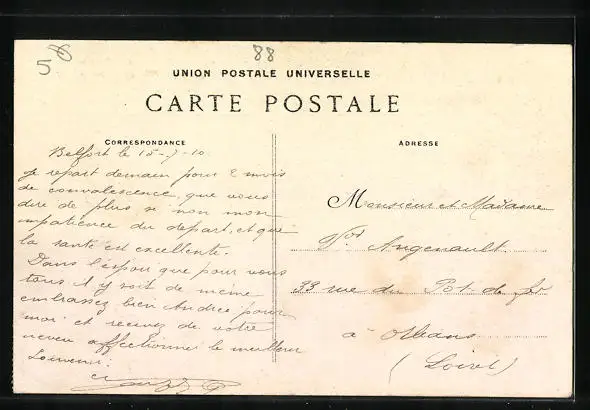 56
88
UNION POSTALE UNIVERSELLE
CARTE POSTALE
CORRESPONDANCE
ADRESSE
Belfort le 15-7-10
Je repart demain pour 2 mois
de convalescence, que vous
dire de plus si non mon
impatience du départ, et que
la santé est excellente.
Dans l'espoir que pour vous
tous il y soit de même
embrassez bien André pour
moi et recevez de votre
neveu affectionné le meilleur
Souvenir.
Monsieur et Madame
Angenault
33 rue du Pot de fer
à Orléans
(Loiret)